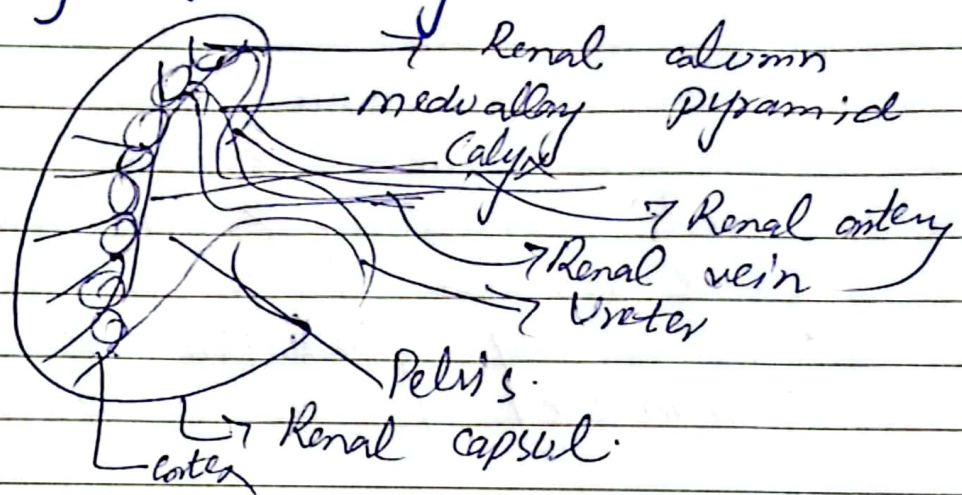 Renal calumn
medvallay pyramid
Calyx
Renal artery
Renal vein
Ureter
Pelvis.
Renal capsul.
Cortex